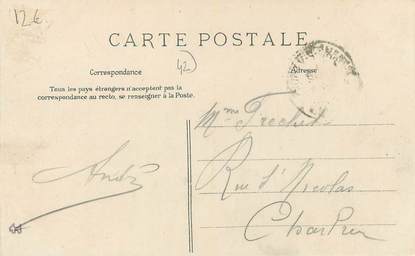 12 €
CARTE POSTALE
42
Correspondance
Adresse
Tous les pays étrangers n'acceptent pas la
correspondance au recto, se renseigner à la Poste.
Mme Frechet
André
Rue St Nicolas